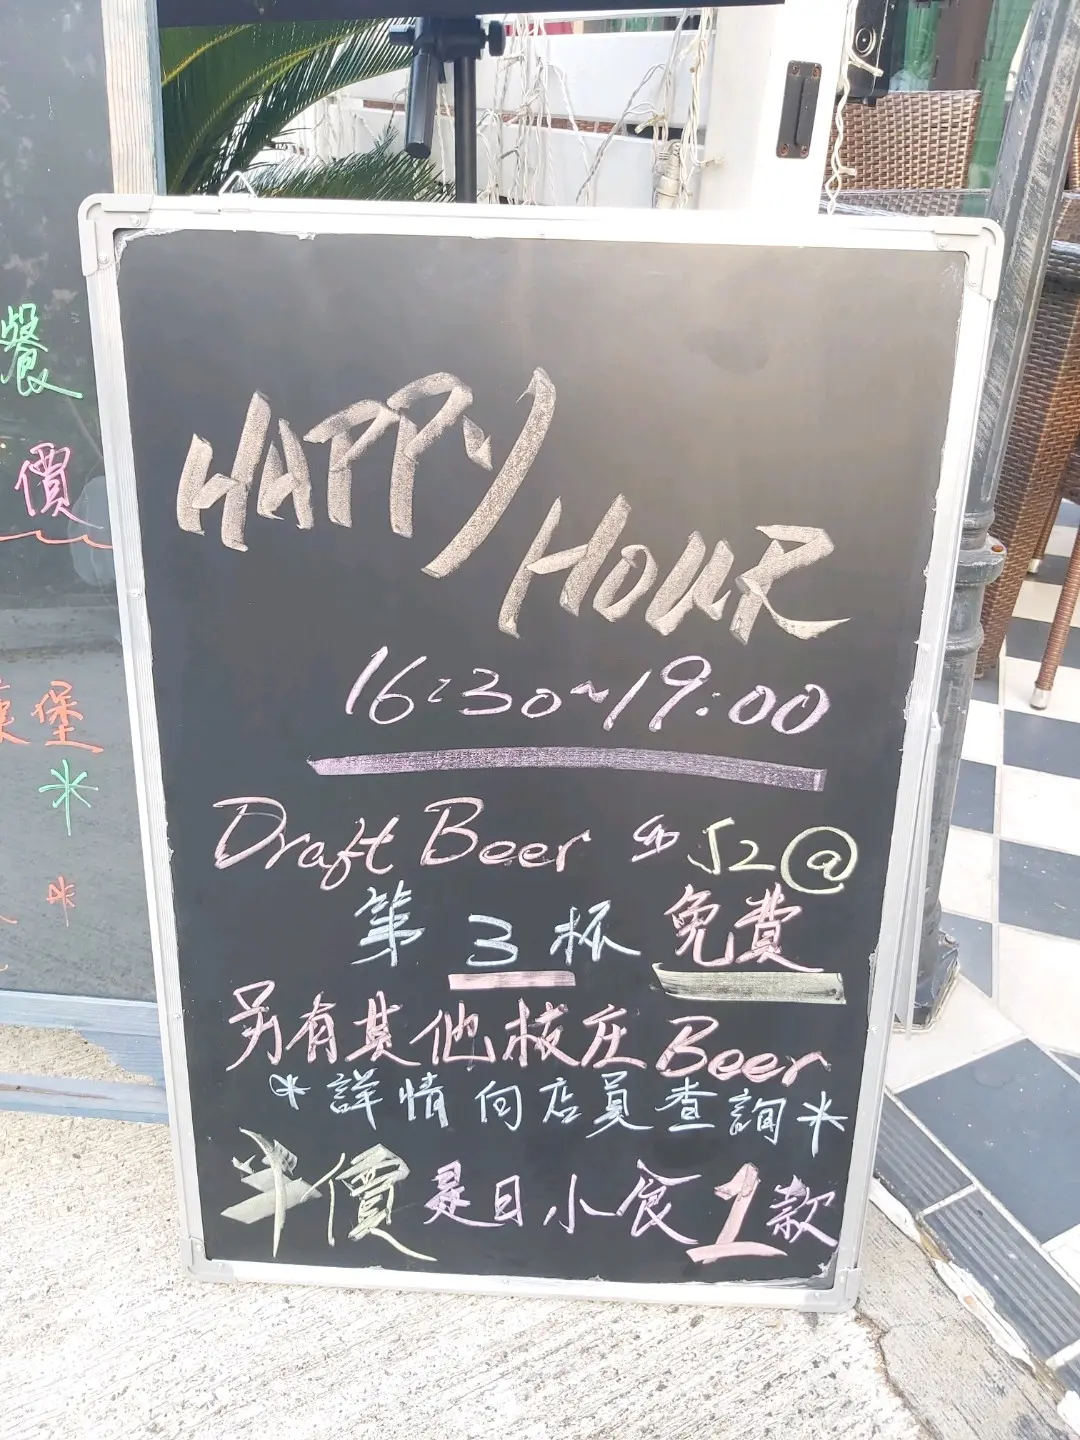 HAPPY
HOUR
16:30~19:00
Draft Beer $52@
第3杯免費
另有其他枝庄Beer
*詳情向店員查詢*
半價是日小食1款
餐
價
堡
*
*